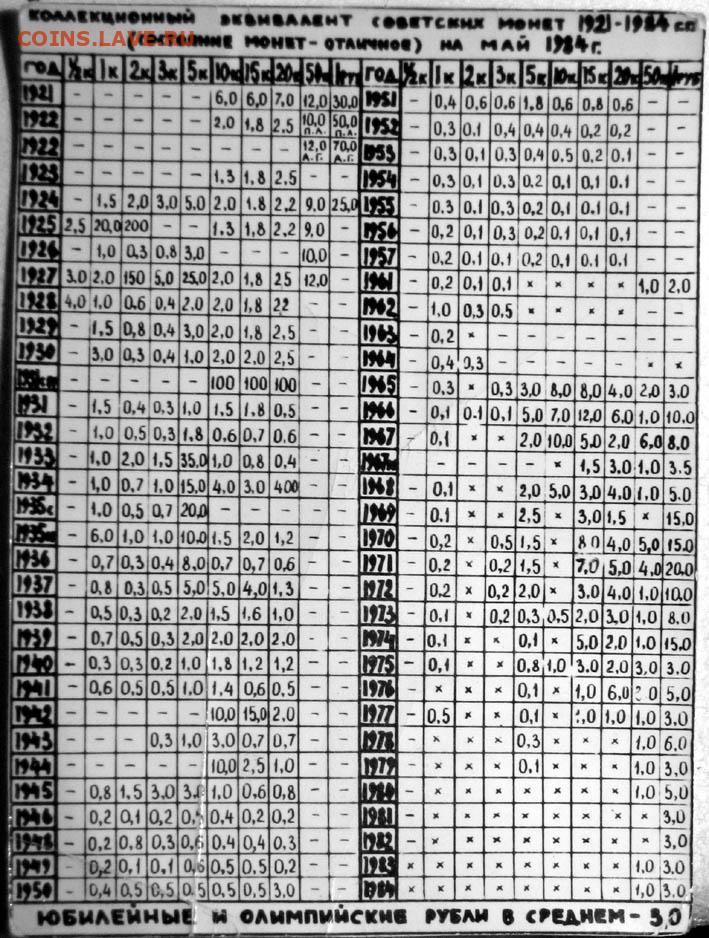 КОЛЛЕКЦИОННЫЙ ЭКВИВАЛЕНТ СОВЕТСКИХ МОНЕТ 1921-1984 г.г.
COINS.LAVE.RU
МОНЕТ-ОТЛИЧНОЕ) НА МАЙ 1984 г.
ГОД ½к 1к 2к 3к 5к 10к 15к 20к 50к 1руб ГОД ½к 1к 2к 3к 5к 10к 15к 20к 50к 1руб
1921 - - - - - 6,0 6,0 7,0 12,0 30,0 1951 - 0,4 0,6 0,6 1,8 0,6 0,8 0,6 - -
1922 - - - - - 2,0 1,8 2,5 10,0 П.Л. 50,0 П.Л. 1952 - 0,3 0,1 0,4 0,4 0,4 0,2 0,2 - -
1922 - - - - - - - - 12,0 А.Г. 70,0 А.Г. 1953 - 0,3 0,1 0,3 0,4 0,5 0,2 0,1 - -
1923 - - - - - 1,3 1,8 2,5 - - 1954 - 0,3 0,1 0,3 0,2 0,1 0,1 0,1 - -
1924 - 1,5 2,0 3,0 5,0 2,0 1,8 2,2 9,0 25,0 1955 - 0,3 0,1 0,3 0,2 0,1 0,1 0,1 - -
1925 2,5 20,0 200 - - 1,3 1,8 2,2 9,0 - 1956 - 0,2 0,1 0,3 0,2 0,1 0,1 0,1 - -
1926 - 1,0 0,3 0,8 3,0 - - - 10,0 - 1957 - 0,2 0,1 0,1 0,2 0,1 0,1 0,1 - -
1927 3,0 2,0 150 5,0 25,0 2,0 1,8 2,5 12,0 - 1961 - 0,2 0,1 0,1 × × × × 1,0 2,0
1928 4,0 1,0 0,6 0,4 2,0 2,0 1,8 2,2 - - 1962 - 1,0 0,3 0,5 × × × × - -
1929 - 1,5 0,8 0,4 3,0 2,0 1,8 2,5 - - 1963 - 0,2 × - - - - - - -
1930 - 3,0 0,3 0,4 1,0 2,0 2,0 2,5 - - 1964 - 0,4 0,3 - - - - - × ×
- - - - - 100 100 100 - - 1965 - 0,3 × 0,3 3,0 8,0 8,0 4,0 2,0 3,0
1931 - 1,5 0,4 0,3 1,0 1,5 1,8 0,5 - - 1966 - 0,1 0,1 0,1 5,0 7,0 12,0 6,0 1,0 10,0
1932 - 1,0 0,5 0,3 1,8 0,6 0,7 0,6 - - 1967 - 0,1 × × 2,0 10,0 5,0 2,0 6,0 8,0
1933 - 1,0 2,0 1,5 35,0 1,0 0,8 0,4 - - - - - - - × 1,5 3,0 1,0 3,5
1934 - 1,0 0,7 1,0 15,0 4,0 3,0 400 - - 1968 - 0,1 × × 2,0 5,0 3,0 4,0 1,0 5,0
1935с - 1,0 0,5 0,7 20,0 - - - - - 1969 - 0,1 × × 2,5 × 3,0 1,5 × 15,0
1935н - 6,0 1,0 1,0 10,0 1,5 2,0 1,2 - - 1970 - 0,2 × 0,5 1,5 × 8,0 4,0 5,0 15,0
1936 - 0,7 0,3 0,4 8,0 0,7 0,7 0,6 - - 1971 - 0,2 × 0,2 1,5 × 7,0 5,0 4,0 20,0
1937 - 0,8 0,3 0,5 5,0 5,0 4,0 1,3 - - 1972 - 0,2 × 0,2 2,0 × 3,0 4,0 1,0 10,0
1938 - 0,5 0,3 0,2 2,0 1,5 1,6 1,0 - - 1973 - 0,1 × 0,2 0,3 0,5 2,0 3,0 1,0 8,0
1939 - 0,7 0,5 0,3 2,0 2,0 2,0 2,0 - - 1974 - 0,1 × × 0,1 × 5,0 2,0 1,0 15,0
1940 - 0,3 0,3 0,2 1,0 1,8 1,2 1,2 - - 1975 - 0,1 × × 0,8 1,0 3,0 2,0 3,0 3,0
1941 - 0,6 0,5 0,5 1,0 1,4 0,6 0,5 - - 1976 - × × × 0,1 × 1,0 6,0 2,0 5,0
1942 - - - - - 10,0 15,0 2,0 - - 1977 - 0,5 × × 0,1 × 1,0 1,0 1,0 3,0
1943 - - - 0,3 1,0 3,0 0,7 0,7 - - 1978 - × × × 0,3 × × × 1,0 6,0
1944 - - - - - 10,0 2,5 1,0 - - 1979 - × × × 0,1 × × × 1,0 3,0
1945 - 0,8 1,5 3,0 3,0 1,0 0,6 0,8 - - 1980 - × × × × × × × 1,0 5,0
1946 - 0,2 0,1 0,2 0,5 0,4 0,2 0,2 - - 1981 - × × × × × × × × 3,0
1948 - 0,2 0,8 0,3 0,6 0,4 0,4 0,3 - - 1982 - × × × × × × × × 3,0
1949 - 0,2 0,1 0,1 0,6 0,5 0,5 0,2 - - 1983 × × × × × × × × 1,0 3,0
1950 - 0,4 0,5 0,5 0,5 0,5 0,5 3,0 - - 1984 × × × × × × × × 1,0 3,0
ЮБИЛЕЙНЫЕ И ОЛИМПИЙСКИЕ РУБЛИ В СРЕДНЕМ - 3,0